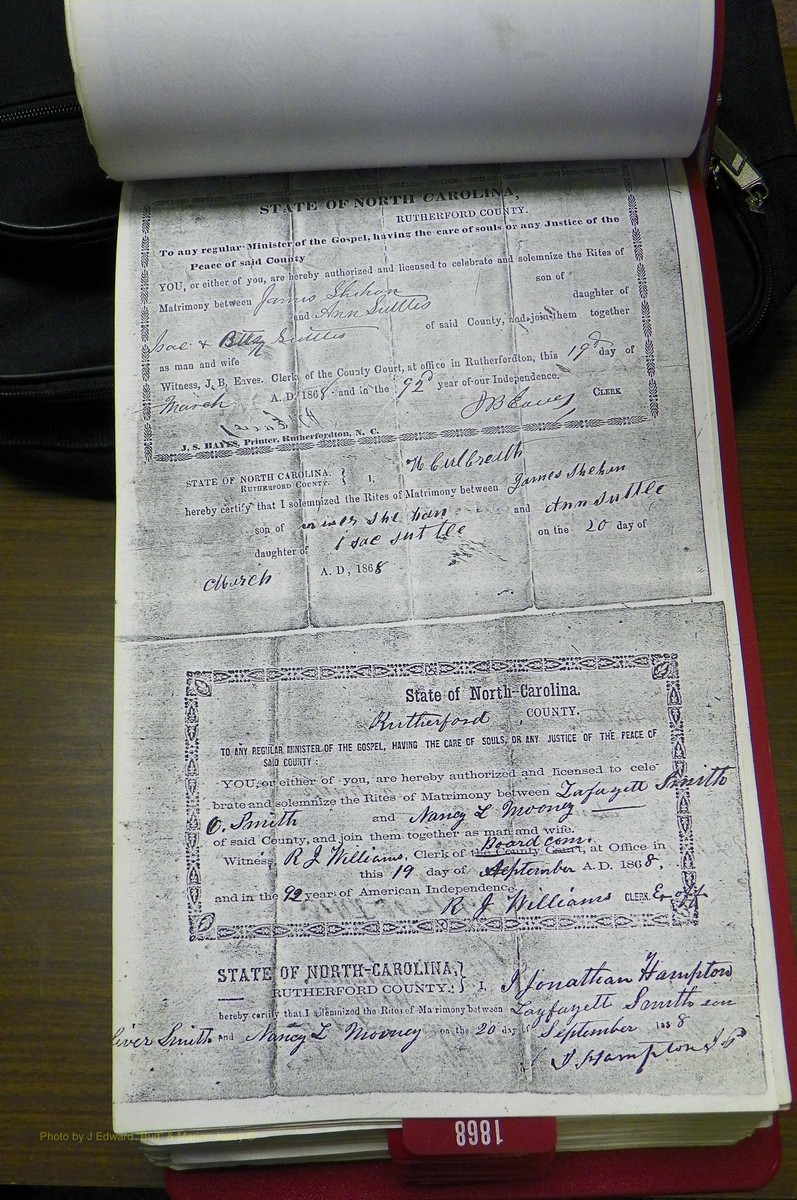 STATE OF NORTH CAROLINA,
RUTHERFORD COUNTY.
To any regular Minister of the Gospel, having the care of souls or any Justice of the
Peace of said County
YOU, or either of you, are hereby authorized and licensed to celebrate and solemnize the Rites of
Matrimony between James Shehan son of
and Ann Suttles daughter of
Isac & Betty Suttles of said County, and join them together
as man and wife
Witness, J. B. Eaves. Clerk of the County Court, at office in Rutherfordton, this 19th day of
March A. D. 1868 and in the 92d year of our Independence.
J B Eaves CLERK
J. S. HAYES, Printer, Rutherfordton, N. C.
STATE OF NORTH CAROLINA, RUTHERFORD COUNTY. } I, H Culbreath
hereby certify that I solemnized the Rites of Matrimony between James Shehan
son of she han and Ann suttle
daughter of isac suttle on the 20 day of
March A. D, 1868
State of North-Carolina.
Rutherford COUNTY.
TO ANY REGULAR MINISTER OF THE GOSPEL, HAVING THE CARE OF SOULS, OR ANY JUSTICE OF THE PEACE OF
SAID COUNTY :
YOU, or either of you, are hereby authorized and licensed to cele-
brate and solemnize the Rites of Matrimony between Lafayett Smith
O. Smith and Nancy L Mooney
of said County, and join them together as man and wife.
Board com.
Witness, R J Williams, Clerk of the County Court, at Office in
this 19 day of September A. D. 1868,
and in the 92 year of American Independence.
R. J Williams CLERK Ex off
STATE OF NORTH-CAROLINA,
RUTHERFORD COUNTY. } I, J Jonathan Hampton
hereby certify that I solemnized the Rites of Matrimony between Layfayett Smith son
liver Smith and Nancy L Mooney on the 20 day of September 1868
J. Hampton J P
1868
Photo by J Edward